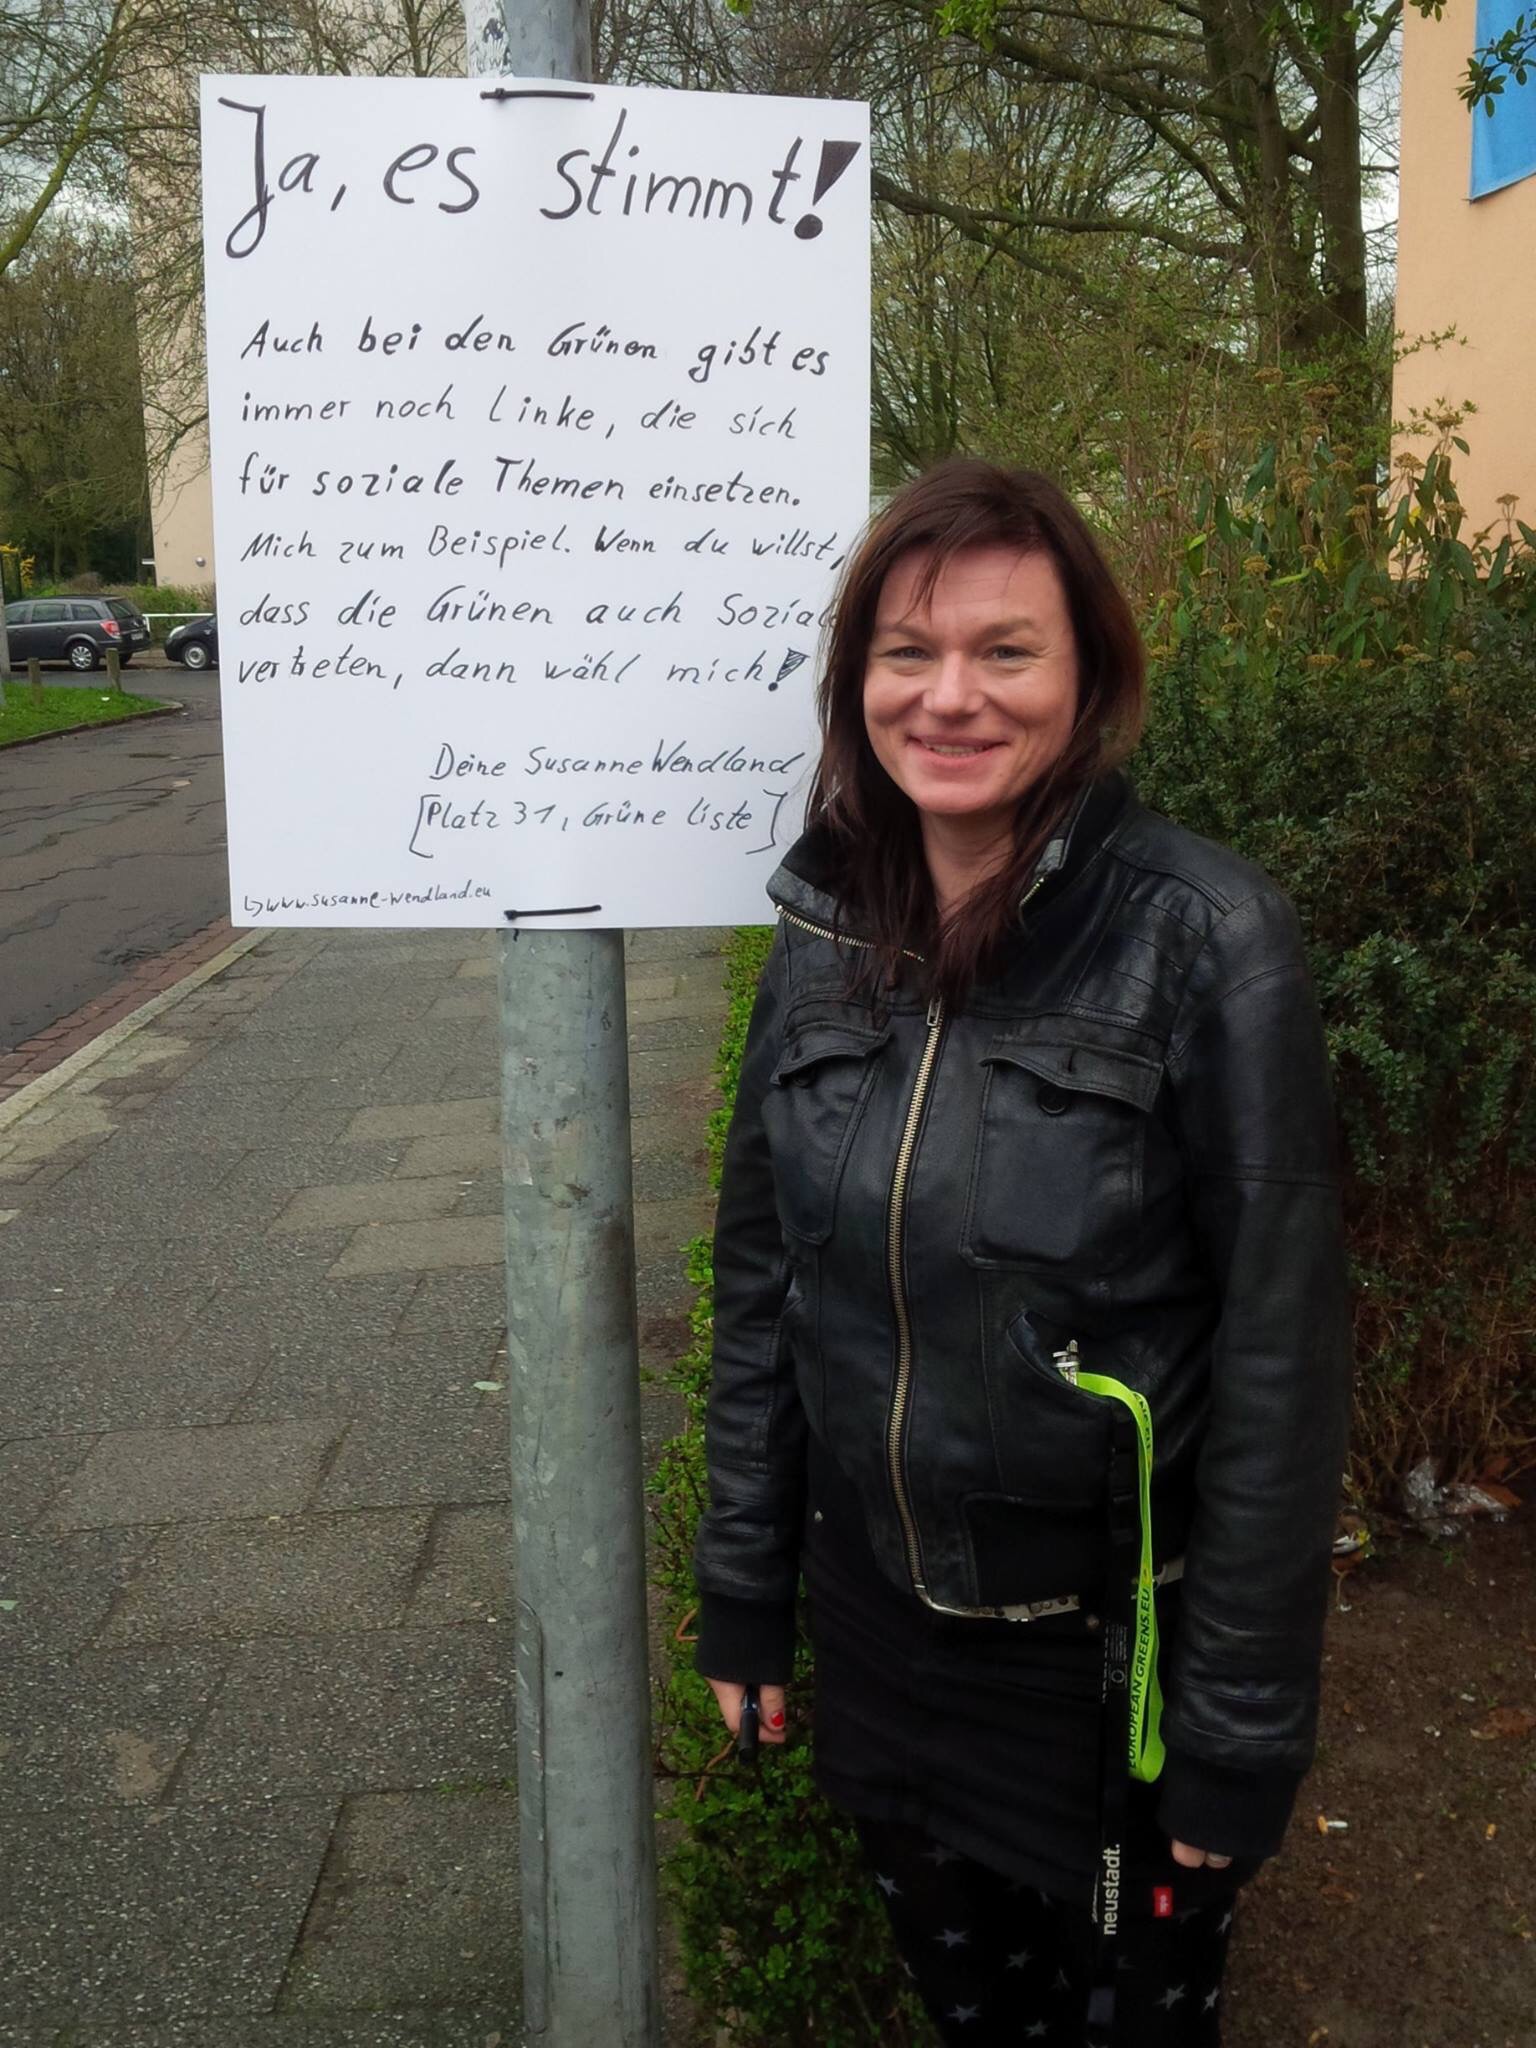 Ja, es stimmt!
Auch bei den Grünen gibt es
immer noch Linke, die sich
für soziale Themen einsetzen.
Mich zum Beispiel. Wenn du willst,
dass die Grünen auch Soziale
vertreten, dann wähl mich!
Deine Susanne Wendland
[Platz 31, Grüne Liste]
↳www.susanne-wendland.eu
EUROPEAN GREENS.EU
neustadt.